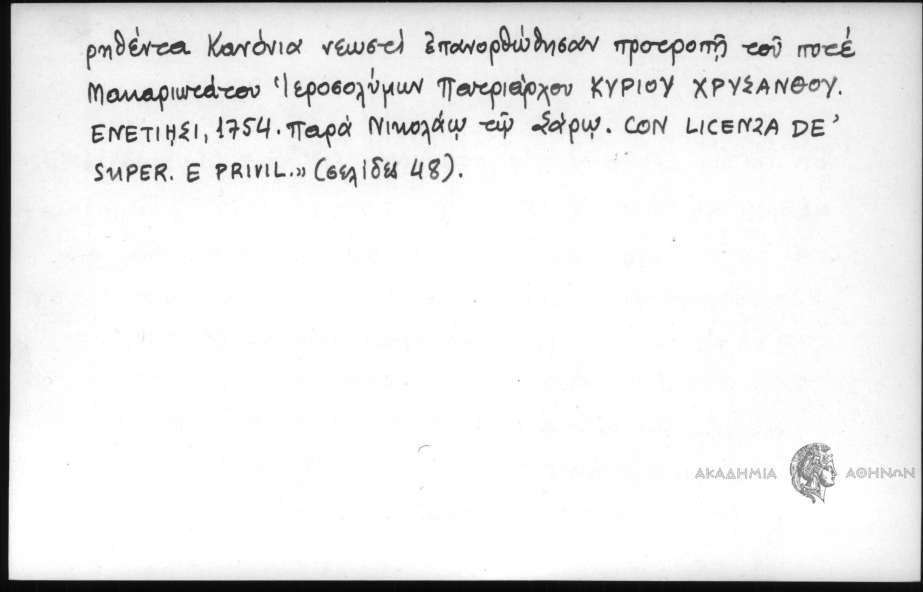 ρηθέντα Κανόνια νεωστὶ ἐπανορθώθησαν προτροπῇ τοῦ ποτέ
Μακαριωτάτου Ἱεροσολύμων Πατριάρχου ΚΥΡΙΟΥ ΧΡΥΣΑΝΘΟΥ.
ΕΝΕΤΙΗΣΙ, 1754. Παρὰ Νικολάῳ τῷ Σάρῳ. CON LICENZA DE'
SUPER. E PRIVIL.» (σελίδες 48).
ΑΚΑΔΗΜΙΑ ΑΘΗΝΩΝ